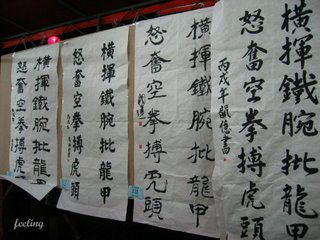 橫揮鐵腕批龍甲
怒奮空拳搏虎頭
丙戌年
橫揮鐵腕批龍甲
怒奮空拳搏虎頭
橫揮鐵腕批龍甲
怒奮空拳搏虎頭
橫揮鐵腕批龍甲
怒奮空拳搏虎
feeling